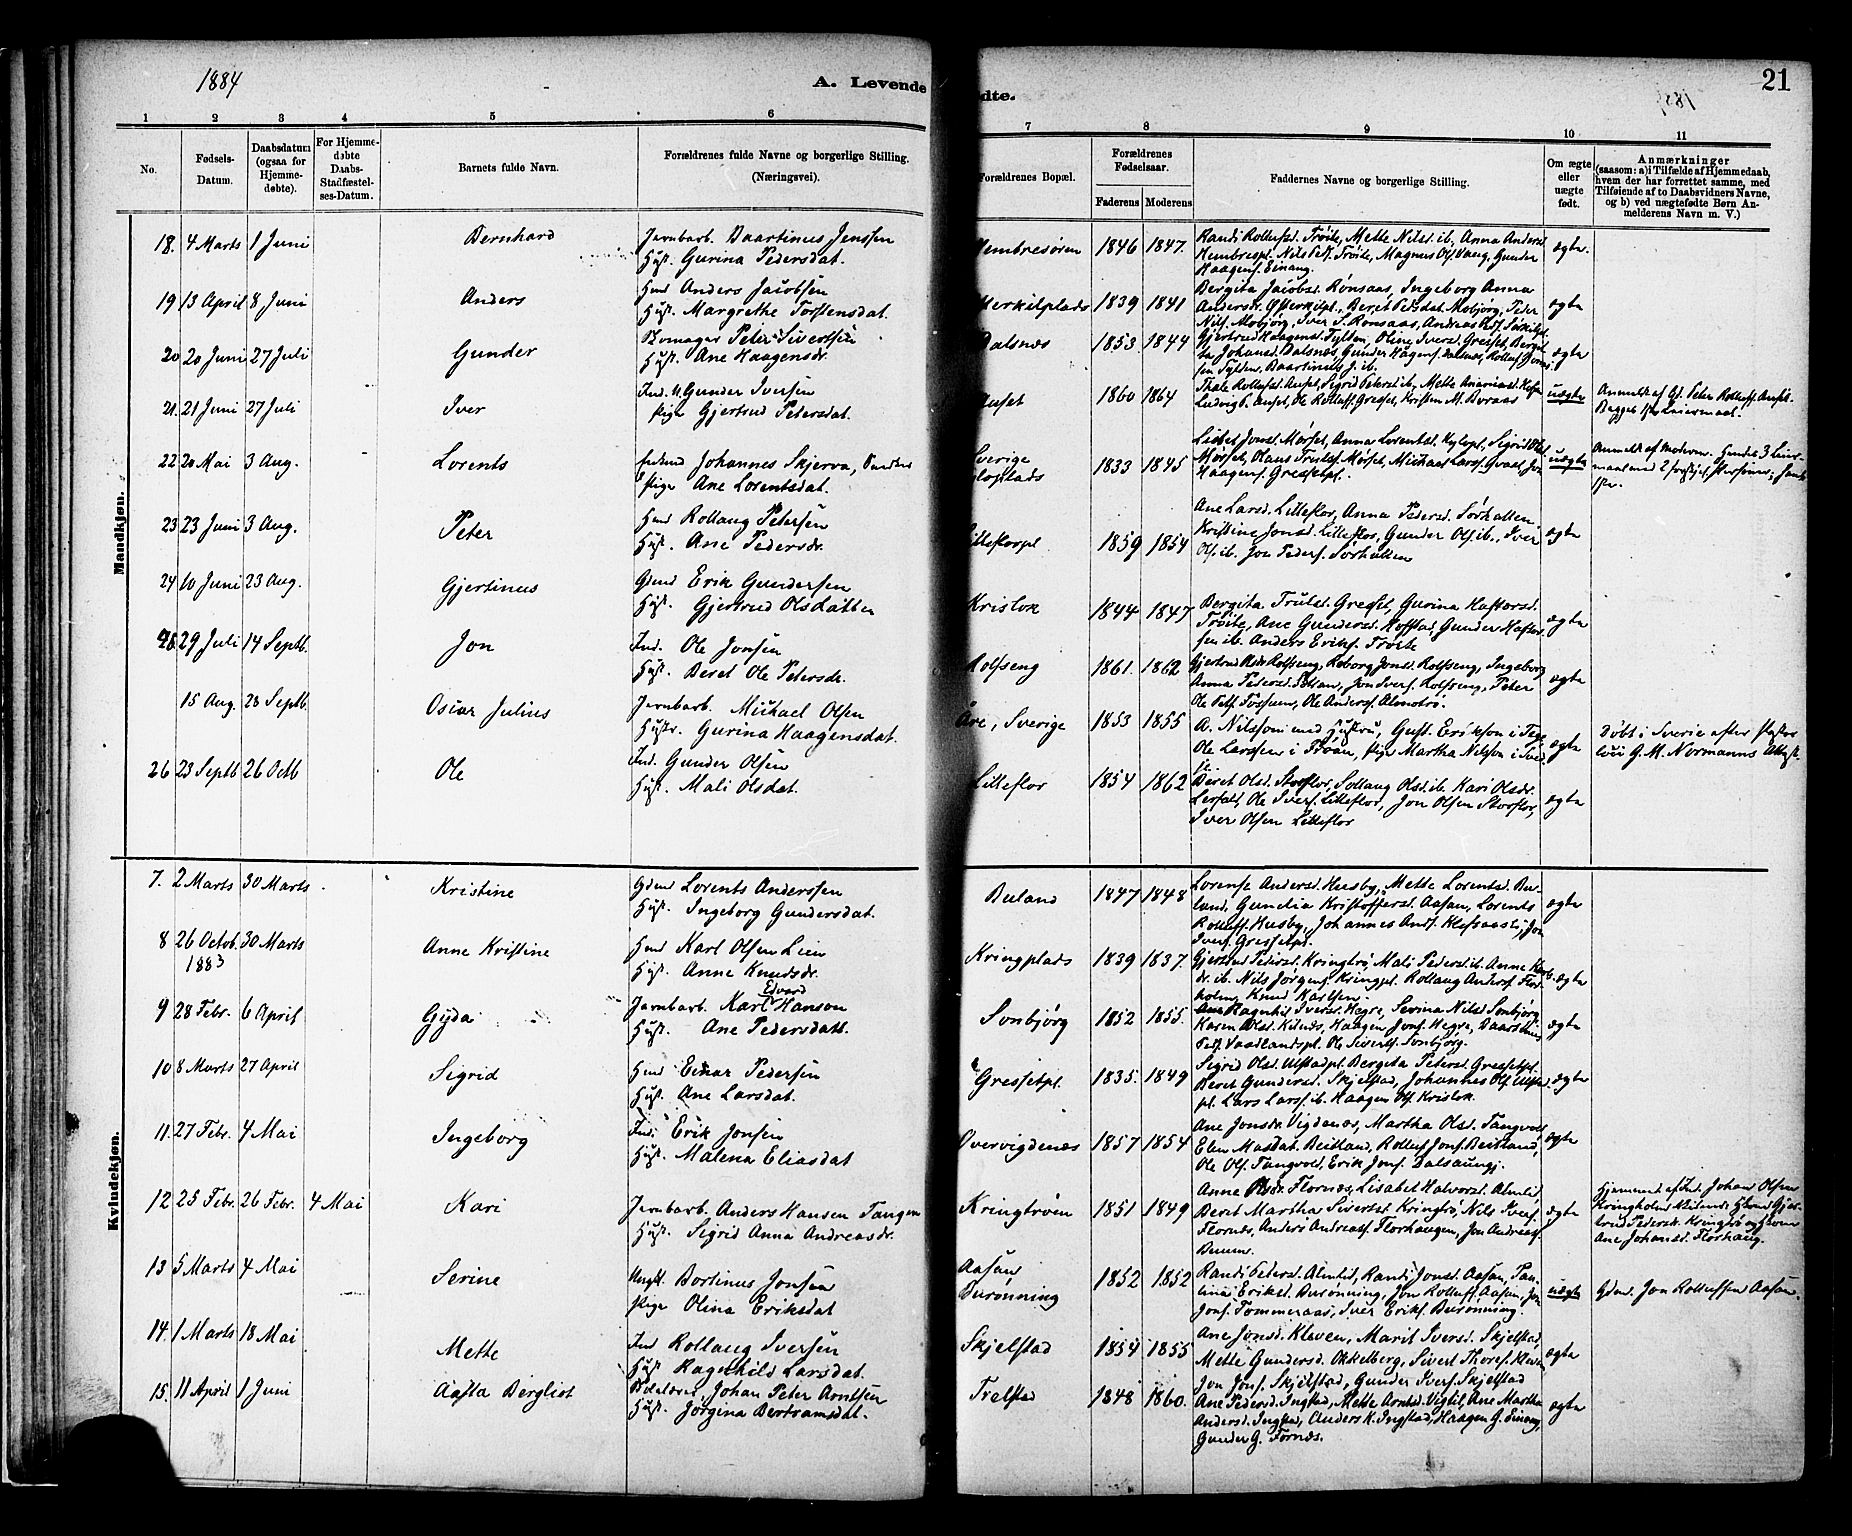 1884
A. Levende
ødte.
21
1 2 3 4 5 6 7 8 9 10 11
No.
Fødsels-Datum.
Daabsdatum (ogsaa for Hjemmedøbte).
For Hjemmedøbte Daabs-Stadfæstelses-Datum.
Barnets fulde Navn.
Forældrenes fulde Navne og borgerlige Stilling. (Næringsvei).
Forældrenes Bopæl.
Forældrenes Fødselsaar.
Faderens Moderens
Faddernes Navne og borgerlige Stilling.
Om ægte eller uægte født.
Anmærkninger
(saasom: a) i Tilfælde af Hjemmedaab, hvem der har forrettet samme, med Tilføiende af to Daabsvidners Navne, og b) ved uægtefødte Børn Anmelderens Navn m. V.)
Mandkjøn.
18. 4 Marts 1 Juni Bernhard Jernbarb. Baartinus Jenssen
Hust. Gurina Pedersdat. Hembresøren 1846 1847. Randi Rollefsd. Trøite, Mette Nilsd. ib., Anna Andersd.
Hembrespl. Nils Petf. Trøite, Magnus Ols. Vaag, Gunder
Haagens. Einang. ægte.
19 13 April 8 Juni Anders Hmd Anders Jacobsen
Hust. Margrethe Torstensdat. Merkilplads 1839 1841 Bergita Jacobsd. Rønsaas, Ingeborg Anna
Andersdr. Merkilpl., Beret Petsdat. Mobjørg, Peter
Nils. Mobjørg, Iver S. Rønsaas, ægte
20 20 Juni 27 Juli Gunder Skomager Peter Sivertsen
Hust. Ane Haagensdr. Dalsnæs 1853. 1844 Gjertrud Haagensd. Fylden, Oline Iversd. Gresset,
Johansd. Dalsnæs, Gunder Haagens. Dalsnæs,
Fylden, Baartinus J. ib. ægte
21. 21 Juni 27 Juli Iver Ind. U. Gunder Iversen
Pige Gjertrud Petersdat. Auset 1860 1864 Thale Rollefsd. Auset, Sigrid Petersd. ib., Mette
Ludvig P. Auset, Ole Rolleff. Gresset, Kristen M. Boraas uægte Anmeldt af Gd. Peter Rolleff. Auset.
Begges 1ste Leiermaal.
22 20 Mai 3 Aug. Lorents Johannes Skjerva,
Pige Ane Lorentsdat. Sverige
1833 1845 Lisbet Jonsd. Mørset, Anna Lorentsd.
Mørset, Olaus Trulsf. Mørset, Michael Larsf.
Haagens. Gressetpl. uægte Anmeldt af Moderen.
23 23 Juni 3 Aug. Peter Hmd Rollaug Petersen
Hust. Ane Pedersdr. Lilleflorpl 1859 1854 Ane Larsd. Lilleflor, Anna Pedersd. Sørhallen
Kristine Jonsd. Lilleflor, Gunder Ols. ib., Iver
Ols. ib. Jon Peders. Sørhallen ægte
24 10 Juni 23 Aug. Gjertinus Gdmd Erik Gundersen
Hust. Gjertrud Olsdatter Kristok 1844 1847 Bergita Trulsd. Gresset, Gurina Haftorsd.
Trøite, Ane Gundersd. Hofstad, Gunder Haftor-
sen ib. Anders Eriks. Trøite ægte
25 29 Juli 14 Septb. Jon Ind. Ole Jonsen
Hust. Beret Ole Petersdr. Rolfseng 1861. 1862 Gjertrud Rolfseng, Roborg Jonsd. Rolfseng, Ingeborg
Anna Pedersd. Jon Ivers. Rolfseng, Peter
Ole Petf. Fossum, Ole Anders. ægte
15 Aug. 28 Septb. Oscar Julius Jernbarb. Michael Olsen
Hustr. Gurina Haagensdat. Åre, Sverige 1853 1855 A. Nilsson med Hustru, Gust. Erikson i
Ole Larssen i Pige Martha Nilsson i ægte Døbt i Sverie efter Pastor
G. M. Normanns Attest.
26 23 Septb 26 Octb Ole Ind. Gunder Olsen
Hust. Mali Olsdat. Lilleflor 1854 1862 Beret Olsd. Storflor, Sollaug Olsd. ib. Kari Olsdr.
Ole Ivers. Lilleflor, Jon Olsen Storflor,
Iver Olsen Lilleflor ægte
Kvindekjøn.
7. 2 Marts 30 Marts Kristine Gdmd Lorents Anderssen
Hust. Ingeborg Gundersdat. Beiland 1847 1848 Lorense Andersd. Husby, Mette Lorentsd. Bei-
land, Gunelia Kristoffersd. Aasan, Lorents
Rolleff. Husby, Johannes Ands. Jon
Ivers. Gressetpl. ægte
8 26 Octob. 1883 30 Marts Anne Kristine Hmd Karl Olsen Lien
Hust. Anne Knudsdr. Kringplads 1839 1837. Gjertrud Pedersd. Kringtrø, Mali Pedersd. ib. Anne Karls-
dr. ib. Nils Jørgens. Kringpl. Rollaug Anders. Flor-
holm, Knud Karlsen. ægte
9 28 Febr. 6 April Gyda Jernbarb. Karl Edvard Hanson
Hust. Ane Pedersdatt. Sonbjørg 1852 1855. Ragnhil Iversd. Hegre, Serina Nilsd. Sonbjørg
Karen Olsd. Kilnæs, Haagen Jons. Hegre, Baartinus
Petf. Vaadlandspl. Ole Sivertf. Sonbjørg. ægte
10 8 Marts 27 April Sigrid Hmd Einar Pedersen
Hust. Ane Larsdat. Gressetpl. 1835. 1849 Sigrid Olsd. Ulstadpl. Bergita Petersd. Gressetpl.
Beret Gundersd. Skjelstad, Johannes Ols. Ulstad-
pl. Lars Larss. ib. Haagen Ols. Kristok. ægte
11. 27 Febr. 4 Mai Ingeborg Ind. Erik Jonsen
Hust. Malena Eliasdat Overvigdenæs 1857 1854 Ane Jonsdr. Vigdenæs, Martha Olsd. Tangvold
Elen Beitland, Rolleif Jons. Beitland,
Ole Ols. Tangvold. Erik Jons. Dalsaung. ægte
12 25 Febr. 26 Febr. 4 Mai Kari Jernbarb. Anders Hansen Tangen
Hust. Sigrid Anna Andreasdr. Kringtrøen 1851 1849 Anne Olsdr. Flornæs, Lisabet Halvorsd. Almlid,
Beret Martha Sivertsd. Kringtrø, Nils Ivers.
Flornæs, Anders Andreass. Florhaugen, Jon Andreass.
ægte Hjemmed. af Ind. Johan Olsen
Kringholm
Pedersd. Kringtrø og
Ane Johansd. Florhaug.
13 5 Marts 4 Mai Serine Ungk. Bortinus Jonsen
Pige Olina Eriksdat Aasan
Burønning 1852 1852 Randi Petersd. Almlid, Randi Jonsd. Aasan, Pau-
lina Eriksd. Burønning, Jon Rolleff. Aasan, Jon
Jons. Tommeraas, Iver Eriks. Burønning. uægte Gdm. Jon Rolleffsen Aasan.
14. 1 Marts 18 Mai Mette Ind Rollaug Iversen
Hust Ragnhild Larsdat. Skjelstad 1854 1855 Ane Jonsd. Kleven, Marit Iversd. Skjelstad,
Mette Gundersd. Okkelberg, Sivert Thores. Kleven
Jon Jons. Skjelstad, Gunder Ivers. Skjelstad ægte
15. 11 April 1 Juni Aasta Bergliot Johan Peter Arntsen
Hust. Jørgina Bertramsdat. Trelstad 1848 1860. Ane Pedersd. Ingstad, Mette Arntsd. Vigtil, Ane Martha
Andersd. Ingstad, Anders K. Ingstad, Haagen G. Einang
Gunder G. Fornæs. ægte